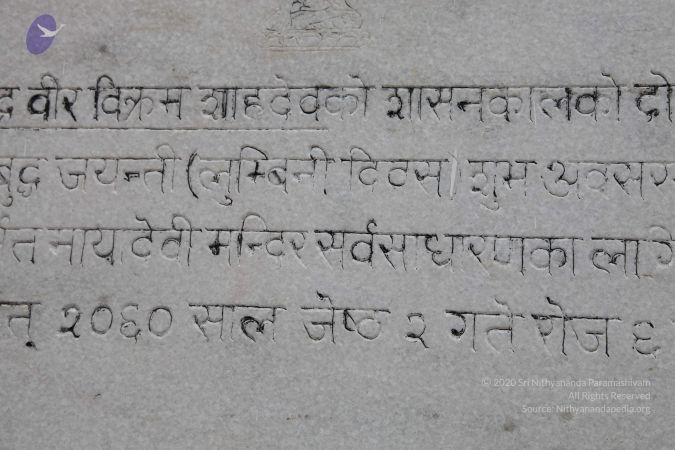 द्र वीर विक्रम शाहदेवको शासनकालको दो
बुद्ध जयन्ती (लुम्बिनी दिवस) शुभ अवसर
मायादेवी मन्दिर सर्वसाधारणका लागि
त् २०६० साल जेष्ठ २ गते रोज ६
© 2020 Sri Nithyananda Paramashivam
All Rights Reserved
Source: Nithyanandapedia.org